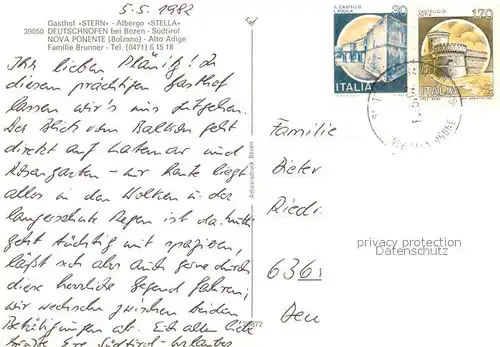 5.5.1982
Gasthof «STERN» - Albergo «STELLA»
39050 DEUTSCHNOFEN bei Bozen - Südtirol
NOVA PONENTE (Bolzano) - Alto Adige
Familie Brunner - Tel. (0471) 6 15 18
Ihr lieben
diesem prächtigen Gasthof
lassen wir's uns gutgehen.
Der Blick vom Balkon geht
direkt auf Latemar und
Rosengarten - nur heute liegt
alles in den Wolken u. der
langersehnte Regen ist da.
geht tüchtig mit spazieren,
läßt sich aber auch gerne durch
diese herrliche Gegend fahren;
wir wechseln zwischen beiden
Betätigungen ab. Euch allen liebe
Grüße Eure Südtirol-Urlauber
Athesiadruck Bozen
IL CASTELLO
L'AQUILA
80
ITALIA
CASTELLO DI
OSTIA
170
ITALIA
Familie
Dieter
Riedi
636
Deu
privacy protection
Datenschutz